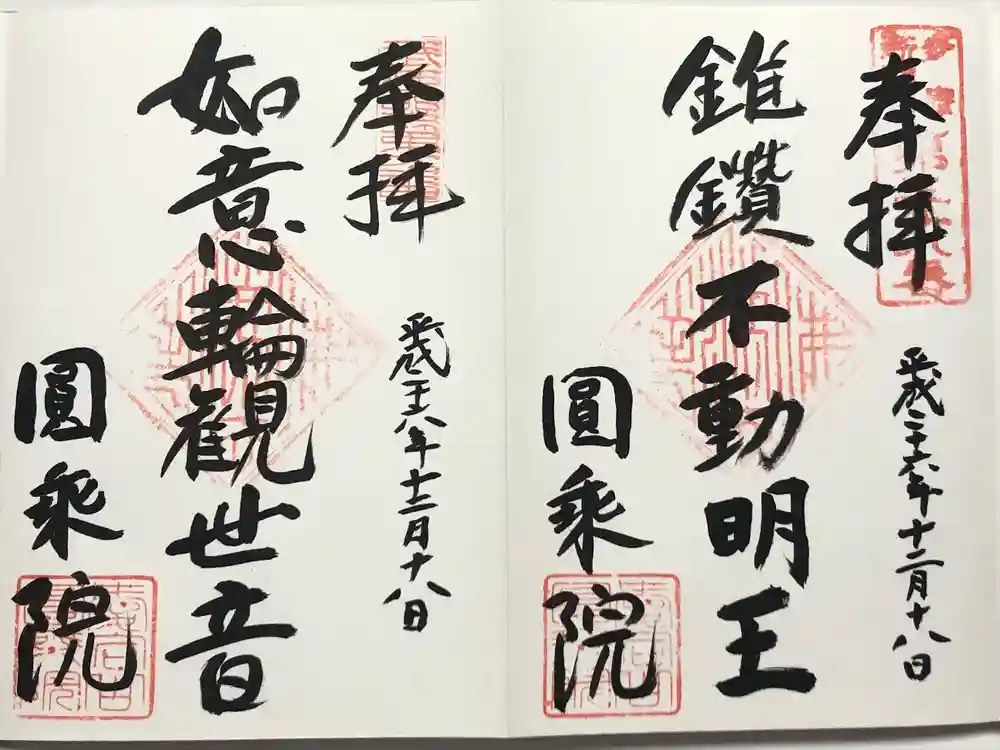 奉拝
平成二十六年十二月十八日
錐鑽不動明王
圓乘院
奉拝
平成二十八年十二月十八日
如意輪觀世音
圓乘院